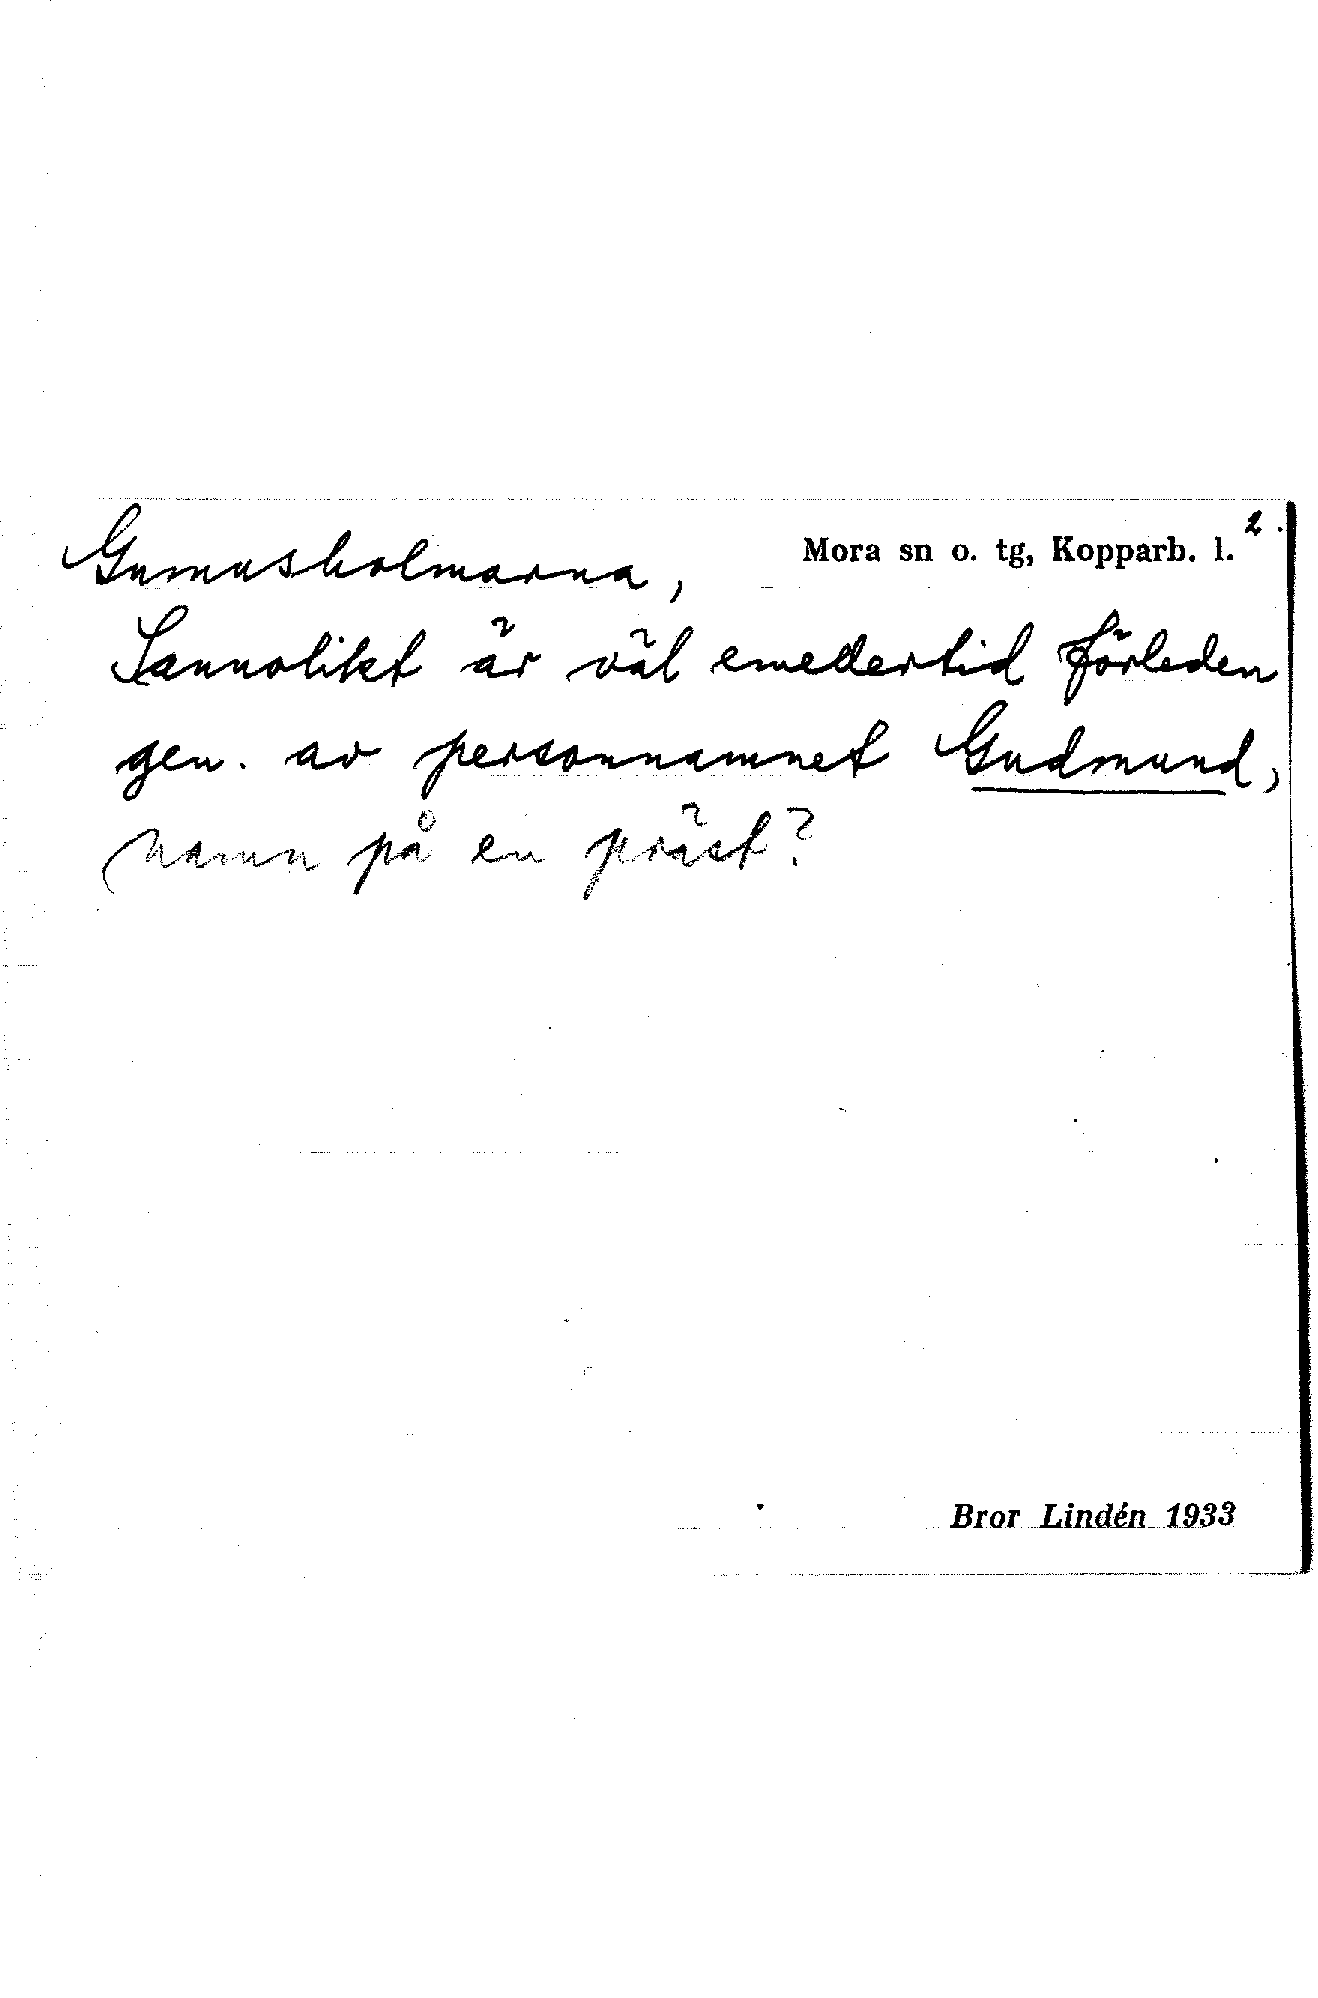 Gumusholmarna, Mora sn o. tg, Kopparb. l. 2.
Sannolikt är väl emellertid förleden
gen. av personnamnet Gudmund,
namn på en präst?
Bror Lindén 1933